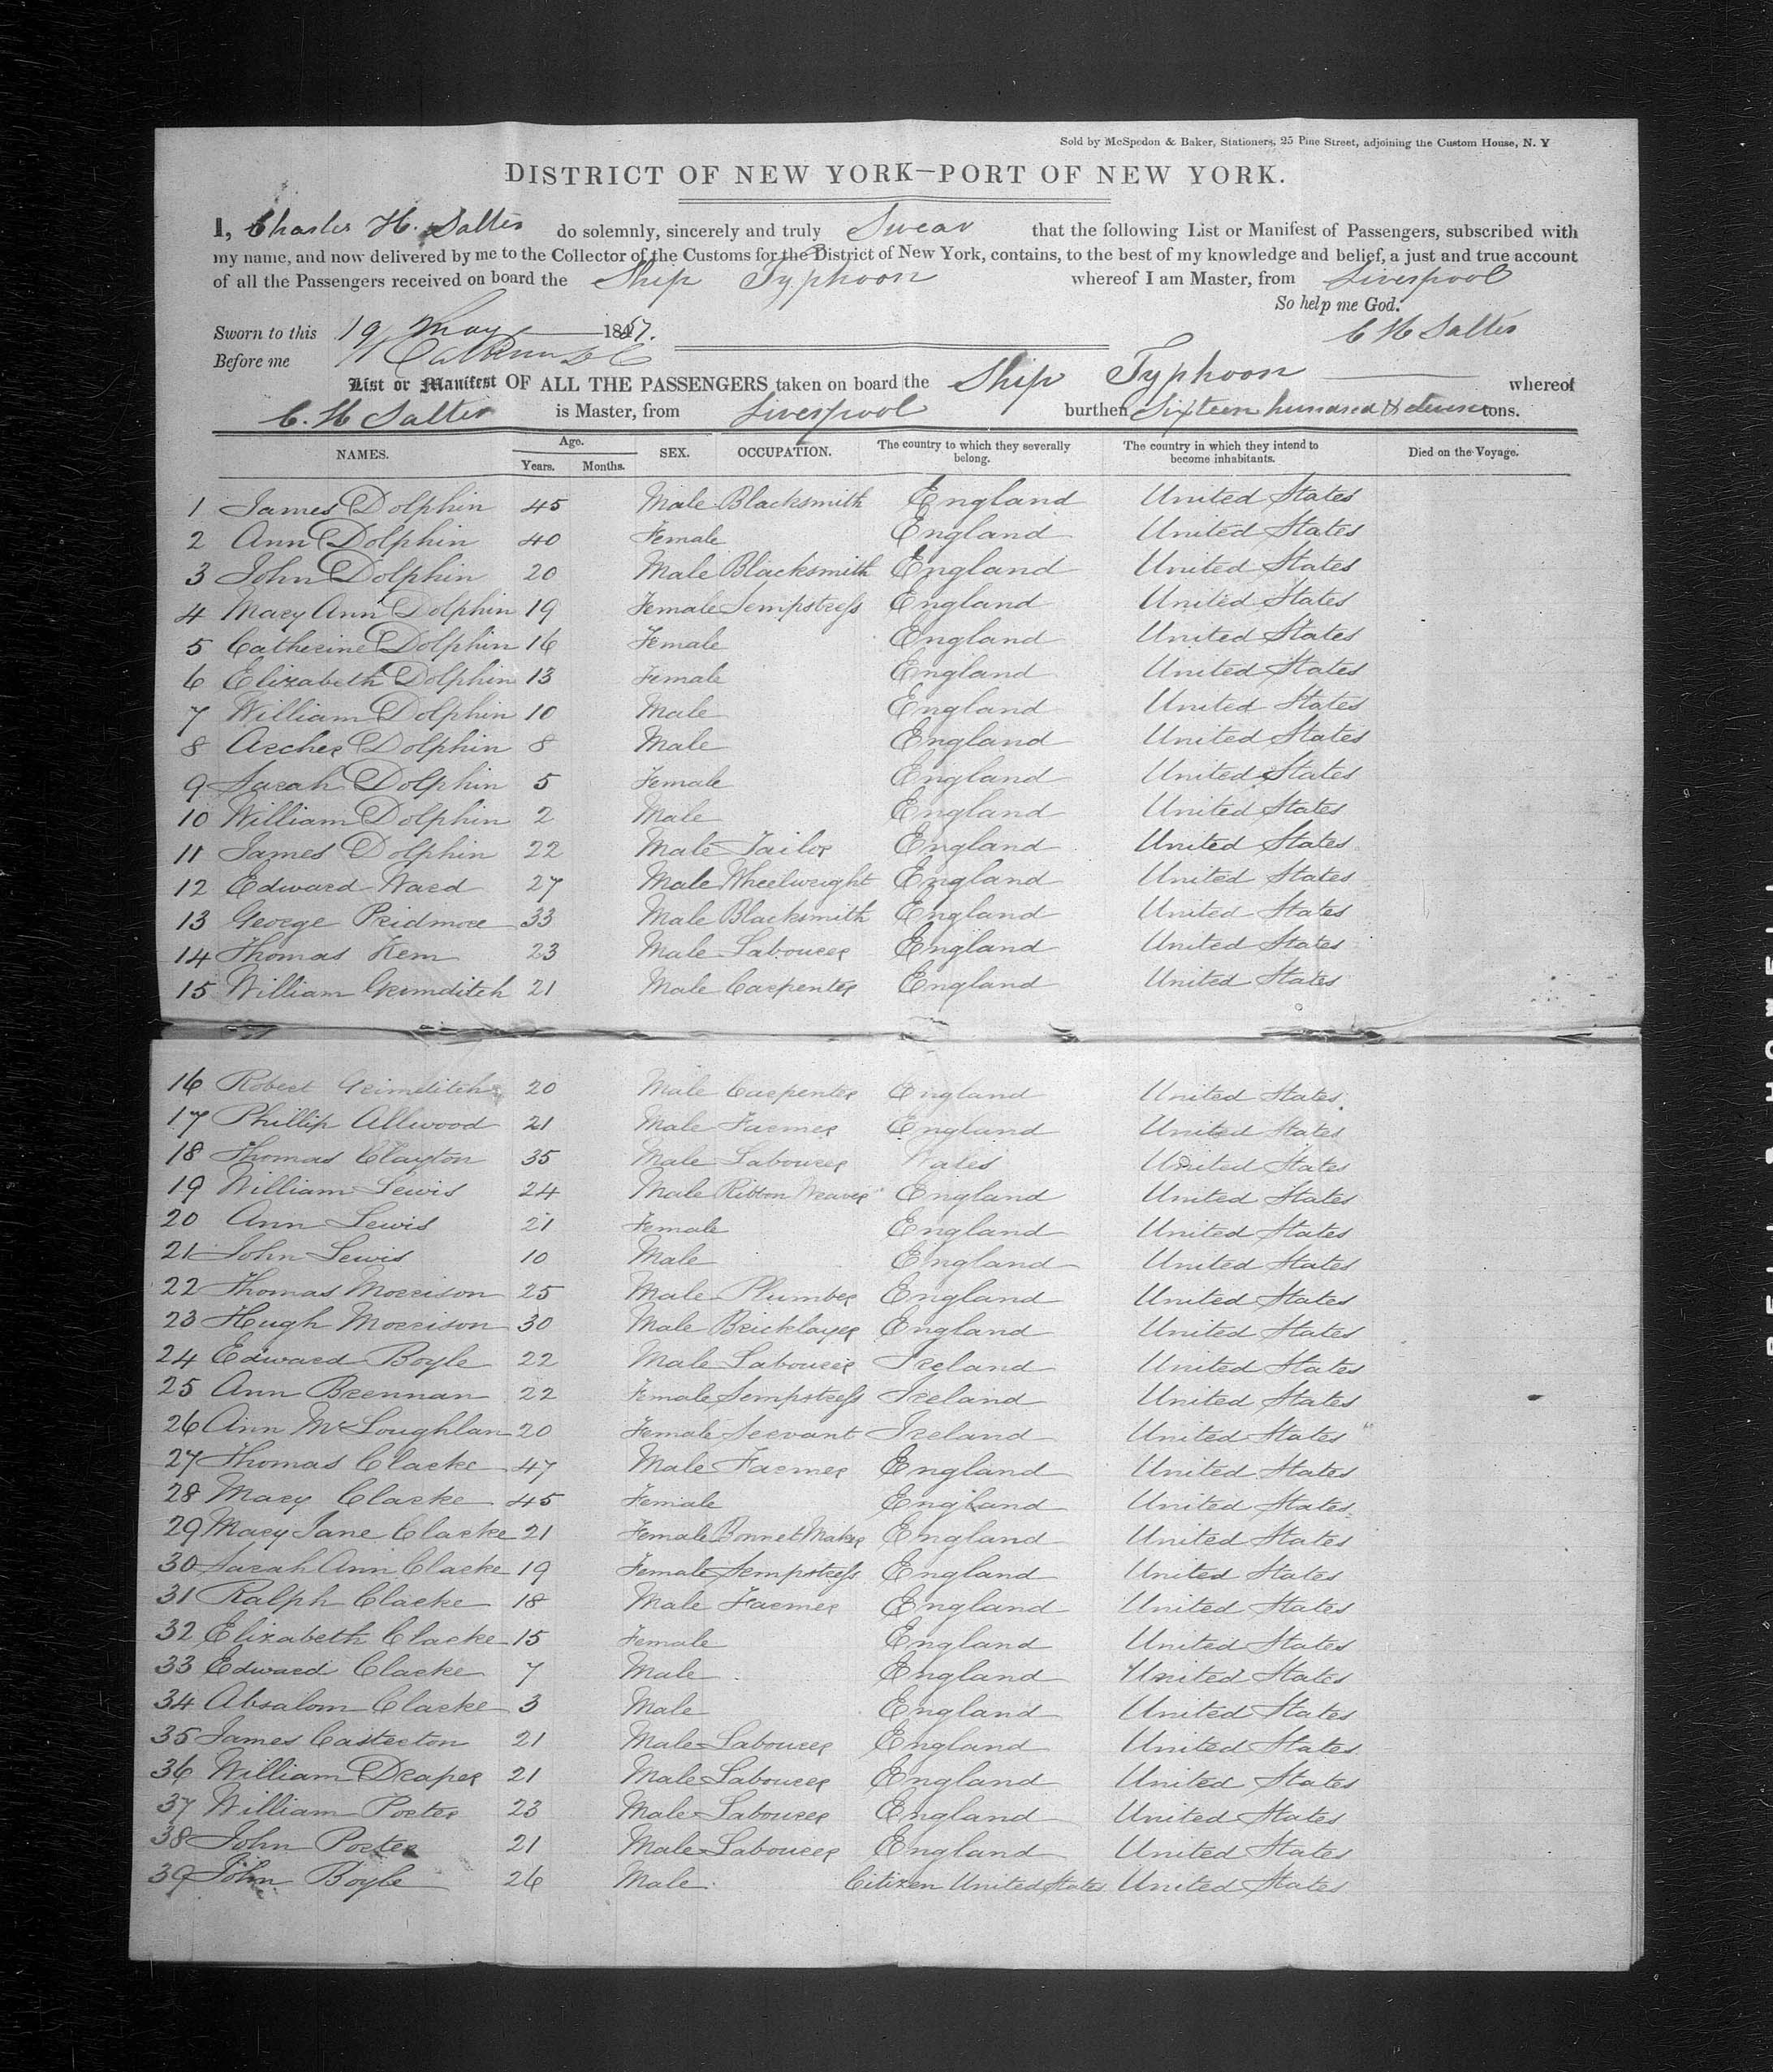 Sold by McSpedon & Baker, Stationers, 25 Pine Street, adjoining the Custom House, N. Y
DISTRICT OF NEW YORK—PORT OF NEW YORK.
I, Charles H. Salter do solemnly, sincerely and truly Swear that the following List or Manifest of Passengers, subscribed with
my name, and now delivered by me to the Collector of the Customs for the District of New York, contains, to the best of my knowledge and belief, a just and true account
of all the Passengers received on board the Ship Typhoon whereof I am Master, from Liverpool
So help me God.
Sworn to this 19 May 1857. C H Salter
Before me
List or Manifest OF ALL THE PASSENGERS taken on board the Ship Typhoon whereof
C. H Salter is Master, from Liverpool burthen Sixteen hundred & eleven tons.
NAMES. Age. Years. Months. SEX. OCCUPATION. The country to which they severally belong. The country in which they intend to become inhabitants. Died on the Voyage.
1 James Dolphin 45 Male Blacksmith England United States
2 Ann Dolphin 40 Female England United States
3 John Dolphin 20 Male Blacksmith England United States
4 Mary Ann Dolphin 19 Female Sempstress England United States
5 Catherine Dolphin 16 Female England United States
6 Elizabeth Dolphin 13 Female England United States
7 William Dolphin 10 Male England United States
8 Archer Dolphin 8 Male England United States
9 Sarah Dolphin 5 Female England United States
10 William Dolphin 2 Male England United States
11 James Dolphin 22 Male Tailor England United States
12 Edward Ward 27 Male Wheelwright England United States
13 George Pridmore 33 Male Blacksmith England United States
14 Thomas Kem 23 Male Labourer England United States
15 William Grimditch 21 Male Carpenter England United States
16 Robert Grimditch 20 Male Carpenter England United States
17 Phillip Allwood 21 Male Farmer England United States
18 Thomas Clayton 35 Male Labourer Wales United States
19 William Lewis 24 Male Ribbon Weaver England United States
20 Ann Lewis 21 Female England United States
21 John Lewis 10 Male England United States
22 Thomas Morrison 25 Male Plumber England United States
23 Hugh Morrison 30 Male Bricklayer England United States
24 Edward Boyle 22 Male Labourer Ireland United States
25 Ann Brennan 22 Female Sempstress Ireland United States
26 Ann McLoughlan 20 Female Servant Ireland United States
27 Thomas Clarke 47 Male Farmer England United States
28 Mary Clarke 45 Female England United States
29 Mary Jane Clarke 21 Female Bonnet Maker England United States
30 Sarah Ann Clarke 19 Female Sempstress England United States
31 Ralph Clarke 18 Male Farmer England United States
32 Elizabeth Clarke 15 Female England United States
33 Edward Clarke 7 Male England United States
34 Absalom Clarke 3 Male England United States
35 James Casterton 21 Male Labourer England United States
36 William Draper 21 Male Labourer England United States
37 William Porter 23 Male Labourer England United States
38 John Porter 21 Male Labourer England United States
39 John Boyle 26 Male Citizen United States United States